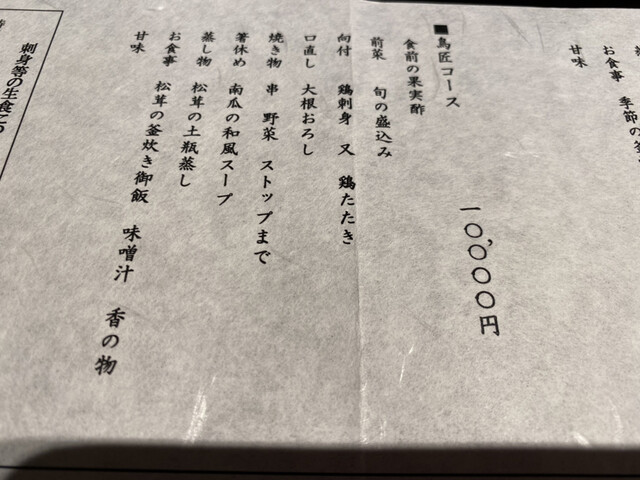 お食事 季節の釜
甘味
■鳥匠コース 一〇,〇〇〇円
食前の果実酢
前菜 旬の盛込み
向付 鶏刺身 又 鶏たたき
口直し 大根おろし
焼き物 串 野菜 ストップまで
箸休め 南瓜の和風スープ
蒸し物 松茸の土瓶蒸し
お食事 松茸の釜炊き御飯 味噌汁 香の物
甘味
刺身等の生食